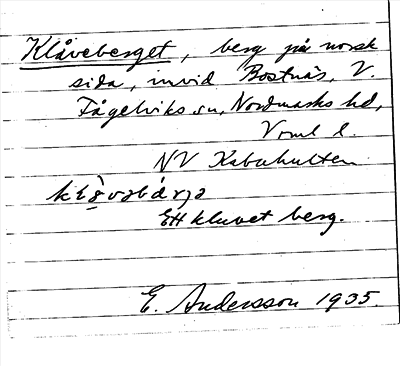 Klåveberget, berg på norsk
sida, invid Bostnäs, V.
Fågelviks sn, Nordmarks hd,
Vrml l.
NV Kabuhulten
Ett kluvet berg.
E. Andersson 1935.